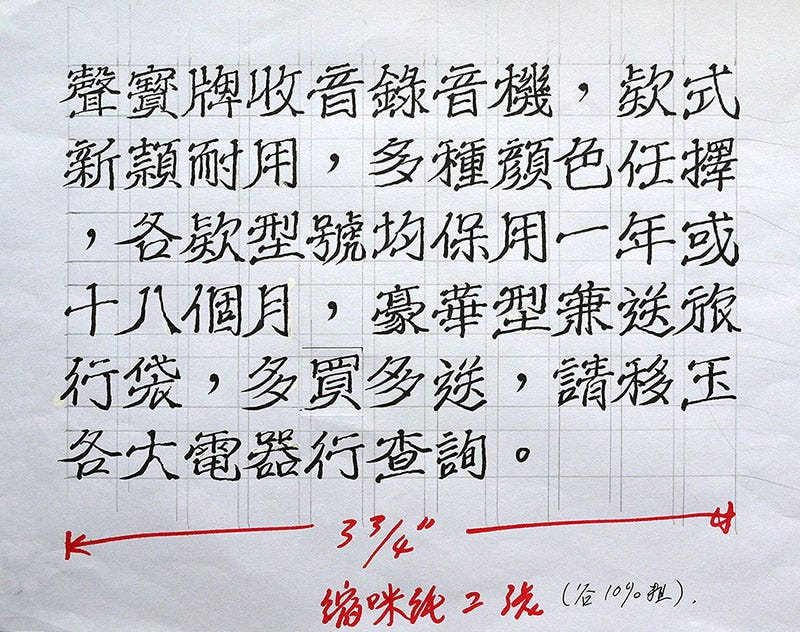 聲寶牌收音錄音機，欵式
新穎耐用，多種顏色任擇
，各欵型號均保用一年或
十八個月，豪華型兼送旅
行袋，多買多送，請移玉
各大電器行查詢。
3 3/4"
縮咪紙2張 (谷10%粗).